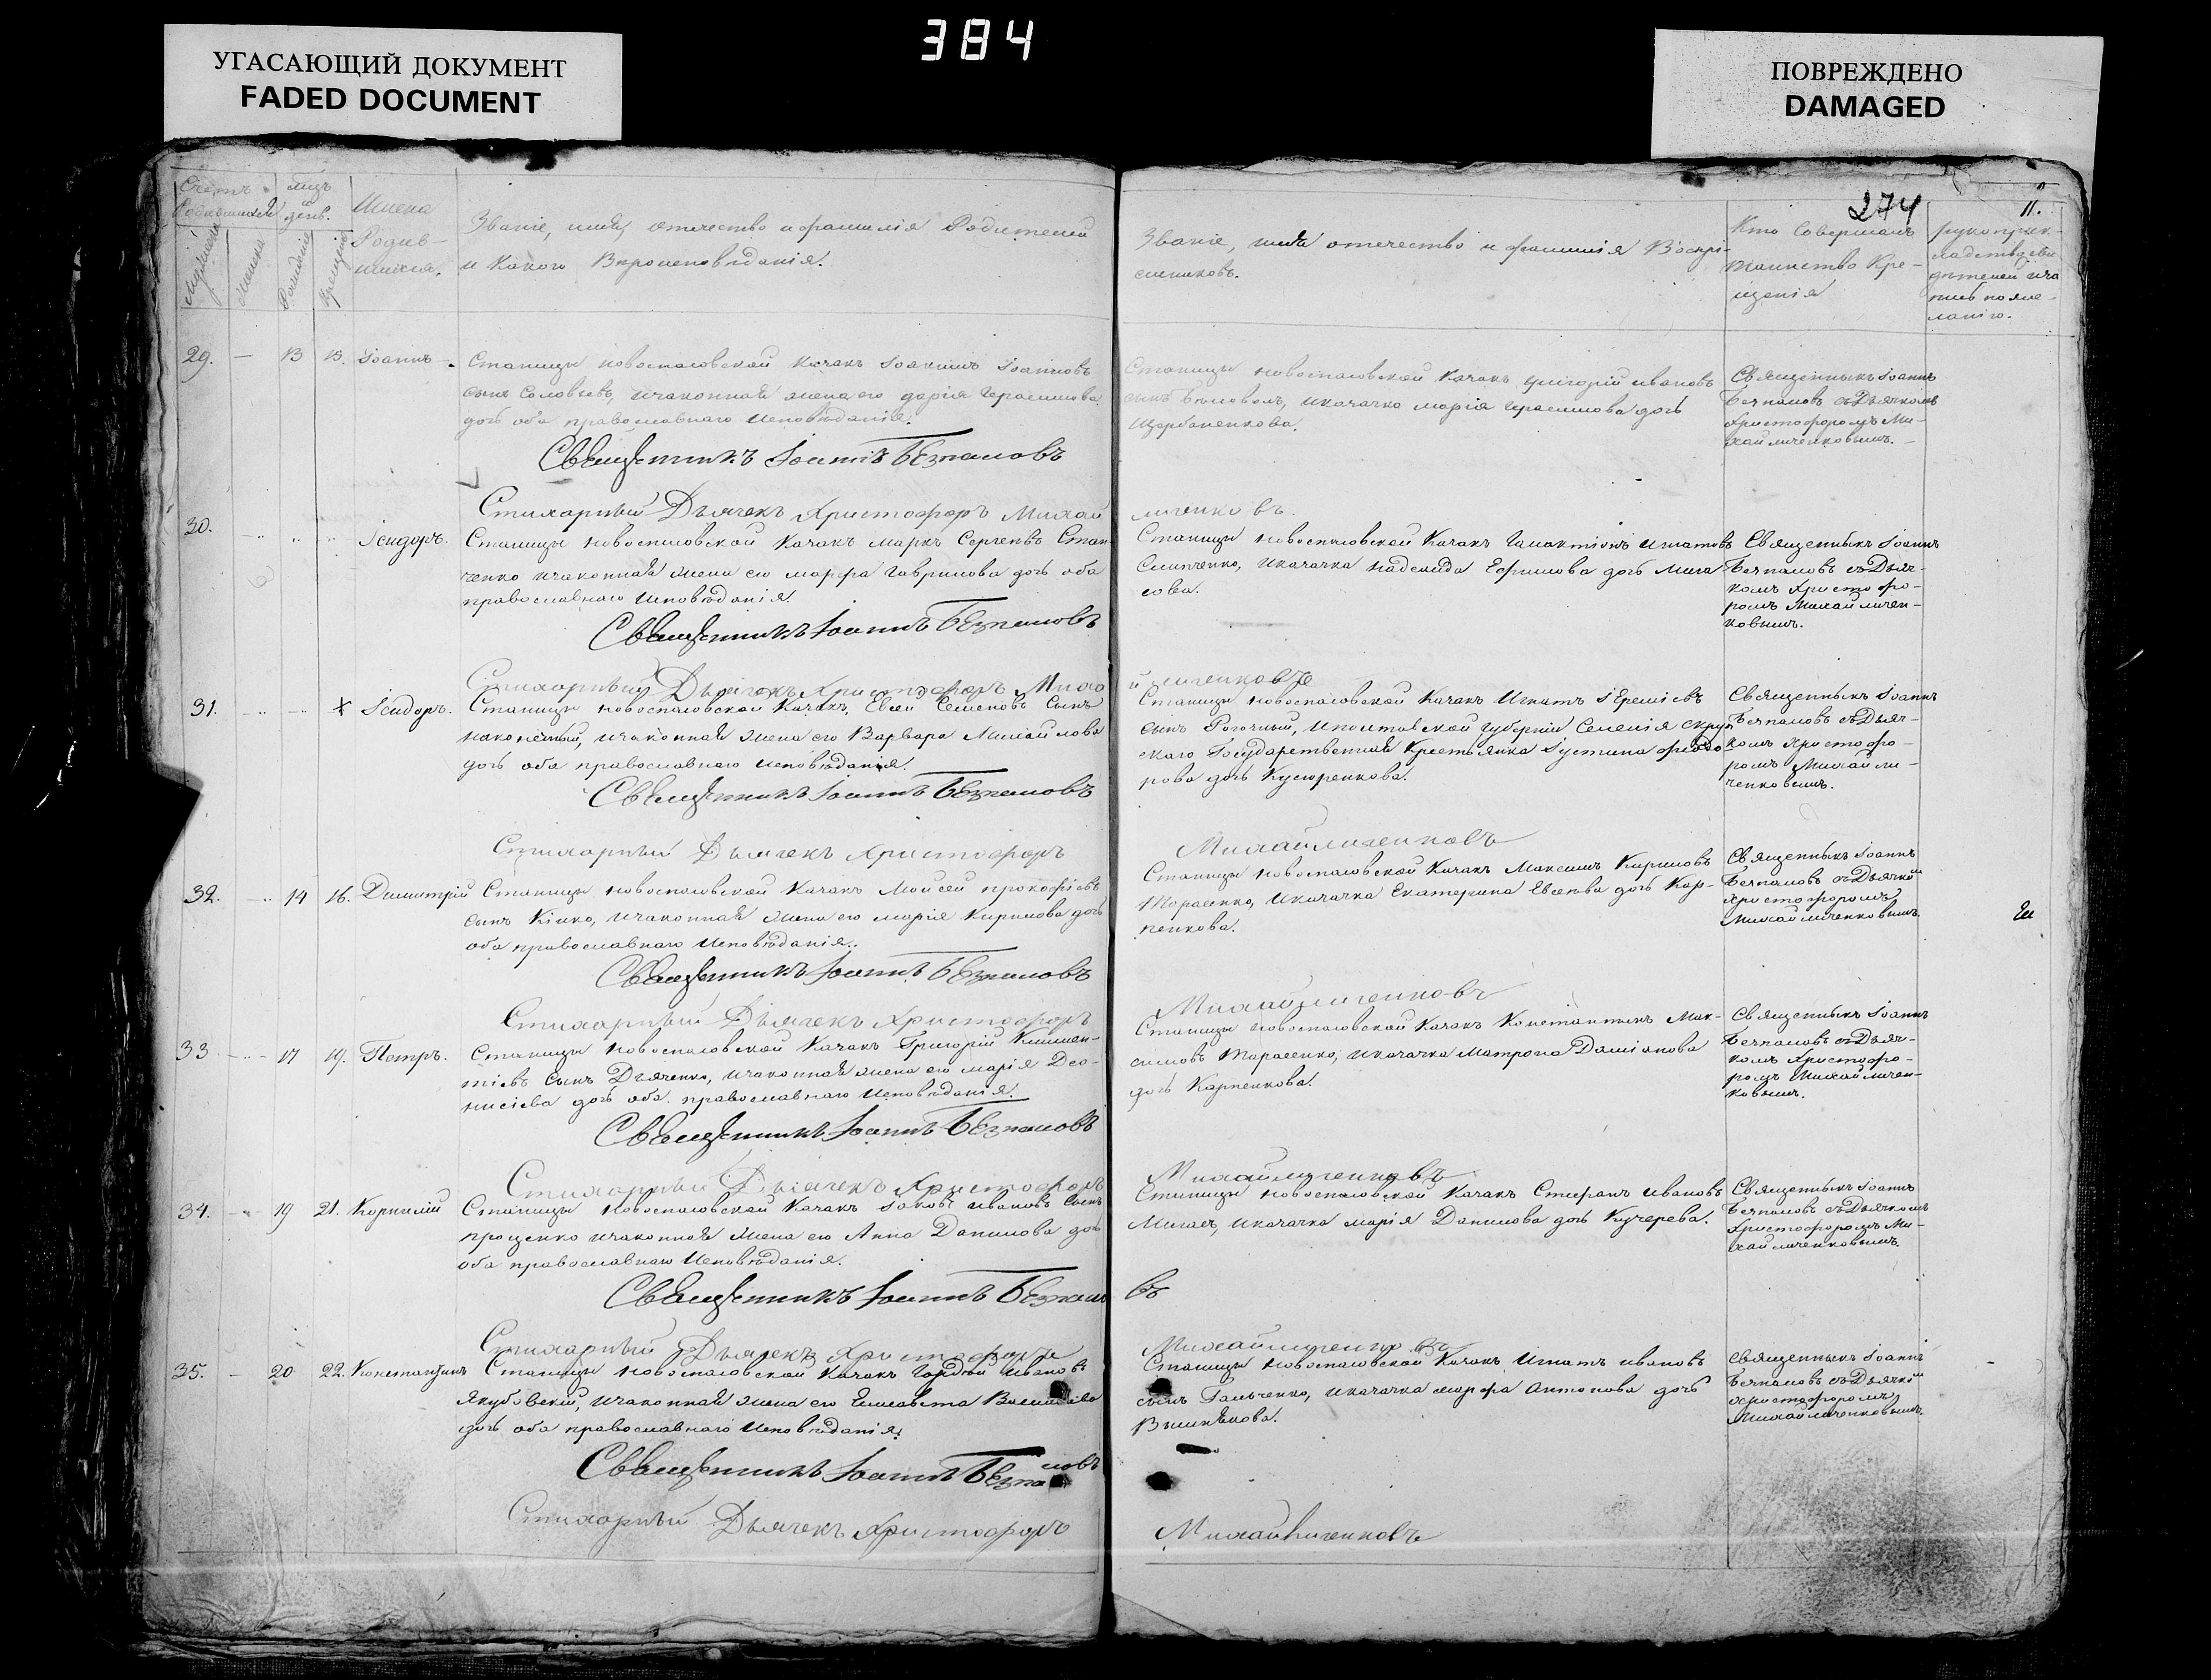 384
УГАСАЮЩИЙ ДОКУМЕНТ
FADED DOCUMENT
ПОВРЕЖДЕНО
DAMAGED
274
11.
Счетъ
мцъ
день.
Имена
Родив-
шихся.
Званіе, имя, отечество и фамилія Родителей
и Какого Вѣроисповѣданія.
Званіе, имя отечество и фамилія Воспрі-
емниковъ.
Кто Совершалъ
таинство Кре-
щенія
рукоприк-
ланію.
29. — 13 15. Іоаннъ Станицы новоспасовской Казакъ Іоакимъ Іоанновъ
сынъ Соловьевъ, изаконная жена его дарія Герасимова
дочь оба православнаго Исповѣданія.
Священникъ Іоаннъ Безпаловъ
Стихарный Дьячекъ Христофоръ Михай
личенковъ.
Станицы новоспасовской Казакъ григорій ивановъ
сынъ, иказачка марія Герасимова дочь
Щербаненкова.
Священникъ Іоаннъ
Безпаловъ съ Дьячкомъ
Христофоромъ Ми-
хайличенковымъ.
30. Ісидоръ. Станицы новоспасовской Казакъ маркъ Сергеевъ Степ
ченко изаконная жена его марфа Гаврилова дочь оба
православнаго Исповѣданія.
Священникъ Іоаннъ Безпаловъ
Стихарный Дьячекъ Христофоръ Миха
йличенковъ
Станицы новоспасовской Казакъ Галактіонъ Игнатовъ
иказачка надежда Ефимова дочь
Священникъ Іоаннъ
Безпаловъ съ Дьяч-
комъ Христофо-
ромъ Михайличен-
ковымъ.
31. Ісидоръ. Станицы новоспасовской Казакъ, Евсей Семеновъ Сынъ
наконечный, изаконная жена его Варвара Михайлова
дочь оба православнаго исповѣданія.
Священникъ Іоаннъ Безпаловъ
Стихарный Дьячекъ Христофоръ
Михайличенковъ
Станицы новоспасовской Казакъ Игнатъ Іереміевъ
сынъ Рогочный, Иполтавской губерніи
скаго Государственная Крестьянка Іустина Федо-
рова дочь
Священникъ Іоаннъ
Безпаловъ съ Дьяч-
комъ Христофо-
ромъ Михайли-
ченковымъ.
32. 14 16. Димитрій Станицы новоспасовской Казакъ Моисей прокофіевъ
сынъ Кіяко, изаконная жена его марія Кирилова дочь
оба православнаго Исповѣданія.
Священникъ Іоаннъ Безпаловъ
Стихарный Дьячекъ Христофоръ
Михайличенковъ
Станицы новоспасовской Казакъ Максимъ Кириловъ
Тарасенко, иказачка Екатерина Евсеева дочь Кар-
пенкова.
Священникъ Іоаннъ
Безпаловъ съ Дьячко
Христофоромъ
Михайличенковымъ.
33 17 19. Петръ. Станицы новоспасовской Казакъ Григорій Климен-
тіевъ Сынъ Дьяченко, изаконная жена его марія Део-
нисіева дочь оба православнаго Исповѣданія.
Священникъ Іоаннъ Безпаловъ
Стихарный Дьячекъ Христофоръ
Михайличенковъ
Станицы новоспасовской Казакъ Константинъ Мак-
симовъ Тарасенко, иказачка Матрона Даміанова
дочь Карпенкова.
Священникъ Іоаннъ
Безпаловъ съ Дьяч-
комъ Христофо-
ромъ Михайличен-
ковымъ.
34. 19 21. Корнилій Станицы новоспасовской Казакъ Іаковъ ивановъ Сынъ
проценко изаконная жена его Анна Данилова дочь
оба православнаго Исповѣданія.
Священникъ Іоаннъ Безпало
въ
Стихарный Дьячекъ Христофоръ
Михайличенковъ
Станицы новоспасовской Казакъ Стефанъ ивановъ
иказачка марія Данилова дочь Кучерева.
Священникъ Іоаннъ
Безпаловъ съ Дьячкомъ
Христофоромъ Ми-
хайличенковымъ.
35. — 20 22. Константинъ Станицы новоспасовской Казакъ Гордѣй Ивановъ
Якубовскій, изаконная жена его Елисавета
дочь оба православнаго Исповѣданія.
Священникъ Іоаннъ Безпаловъ
Стихарный Дьячекъ Христофоръ
Михайличенковъ
Станицы Новоспасовской Казакъ Игнатъ ивановъ
сынъ Гальченко, иказачка марфа антонова дочь
Священникъ Іоаннъ
Безпаловъ съ Дьячко
Христофоромъ
Михайличенковымъ.